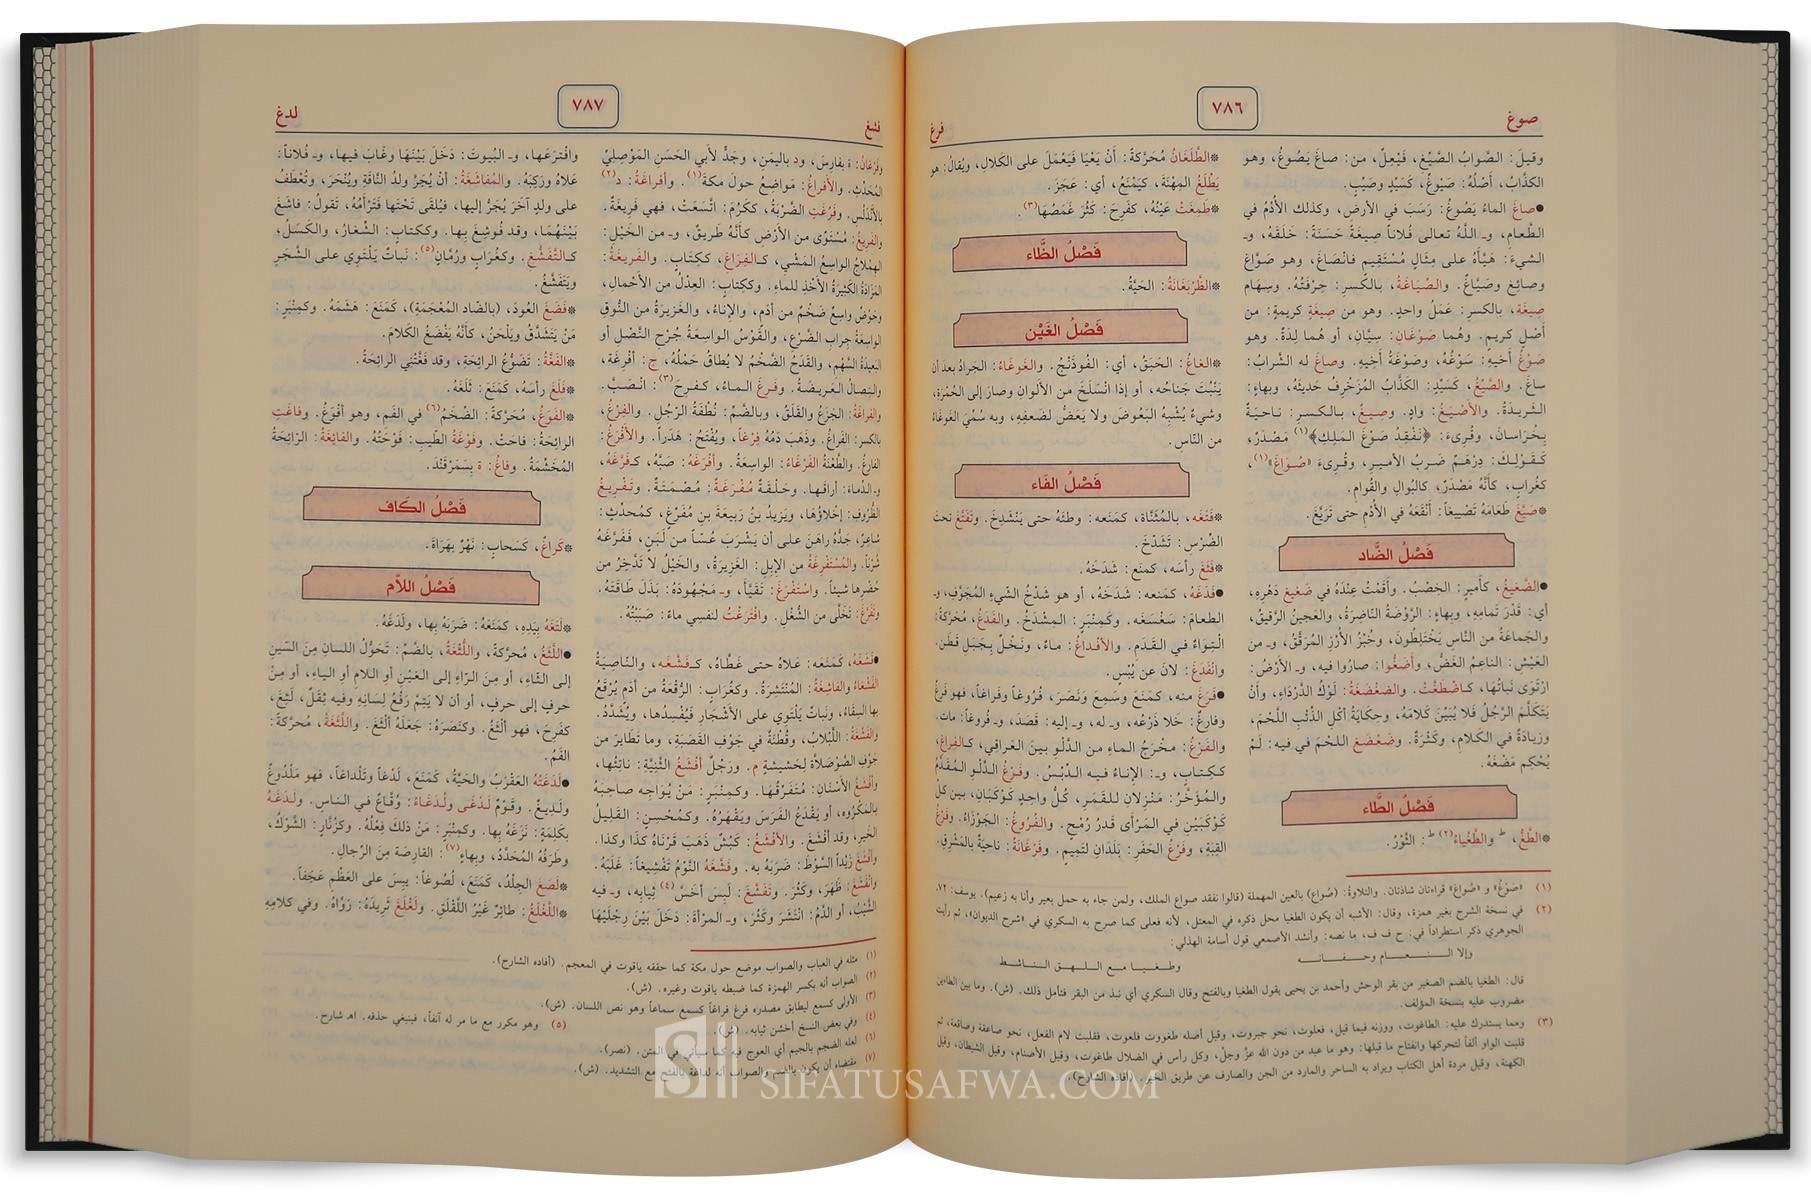 صوغ
٧٨٦
فرغ
وقيلَ: الصَّوابُ الصَّيِّغ، فَيْعِلٌ، من: صاغَ يَصُوغُ، وهو
الكذَّابُ، أصْلُهُ: صَيْوِغٌ، كَسَيِّدٍ وصَيِّبٍ.
●صاغَ الماءُ يَصُوغُ: رَسَبَ في الأرضِ، وكذلك الأُدْمُ في
الطَّعامِ، وـ اللَّهُ تعالى فُلاناً صِيغَةً حَسَنَةً: خَلَقَهُ، وـ
الشيءَ: هَيَّأَهُ على مِثالٍ مُسْتَقِيمٍ فانْصَاغَ، وهو صَوَّاغٌ
وصائِغٌ وصَيَّاغٌ. والصِّيَاغَةُ، بالكسر: حِرْفَتُهُ. وسِهام
صِيغَة، بالكسر: عَمَلُ واحِدٍ. وهو من صِيغَةٍ كريمةٍ: من
أصْلٍ كريمٍ. وهُما صَوْغانِ: سِيَّانِ، أو هُما لِدَةٌ. وهو
صَوْغُ أخيهِ: سَوْغُهُ، وصَوْغَةُ أخِيهِ. وصاغَ له الشرابُ:
ساغَ. والصَّيِّغُ، كَسَيِّدٍ: الكذَّابُ المُزَخْرِفُ حَديثَهُ، وبهاءٍ:
الثَّريدَةُ. والأَصْيَغُ: وادٍ. وصِيغُ، بالكسر: ناحيةٌ
بِخُراسانَ، وقُرِىءَ: ﴿نَفْقِدُ صَوْغَ المَلِكِ﴾(١) مَصْدَرٌ،
كَقَوْلِكَ: دِرْهَمٌ ضَرْبُ الأميرِ، وقُرِىءَ «صُوَاغَ»(١)،
كغُرابٍ، كأنَّهُ مَصْدَرٌ، كالبُوالِ والقُوامِ.
*صَيَّغَ طَعَامَهُ تَصْيِيغاً: أنْقَعَهُ في الأُدْمِ حتى تَرَيَّغَ.
فَصْلُ الضَّاد
●الضَّغِيغُ، كأميرٍ: الخِصْبُ. وأقَمْتُ عِنْدَهُ في ضَغِيغِ دَهْرِهِ،
أي: قَدْرَ تَمامِهِ، وبهاءٍ: الرَّوْضَةُ الناضِرَةُ، والعَجينُ الرَّقيقُ،
والجَماعَةُ من النَّاسِ يَخْتَلِطُونَ، وخُبْزُ الأَرُزِّ المُرَقَّقُ، وـ من
العَيْشِ: الناعِمُ الغَضُّ، وأضَغُّوا: صاروا فيه، وـ الأرضُ:
ارْتَوَى نَباتُهَا، كاضْطَغَّتْ. والضَّغْضَغَةُ: لَوْكُ الدَّرْدَاءِ، وأنْ
يَتَكَلَّمَ الرَّجُلُ فَلا يُبَيِّنُ كَلامَهُ، وحِكايَةُ أكْلِ الذِّئْبِ اللَّحْمَ،
وزِيادَةٌ في الكَلامِ، وكَثْرَةٌ. وضَغْضَغَ اللحْمَ في فيه: لَمْ
يُحْكِمْ مَضْغَهُ.
فَصْلُ الطَّاء
*الطَّغُّ، والطُّغْياءُ(٢): الثَّوْرُ.
*الطَّلَغَانُ مُحَرَّكَةً: أنْ يَعْيَا فَيَعْمَلَ على الكَلالِ، ويُقالُ: هو
يَطْلَغُ المِهْنَةَ، كَيَمْنَعُ، أي: عَجَزَ.
*طَمِغَتْ عَيْنُهُ، كفَرِحَ: كَثُرَ غَمَصُهَا(٣).
فَصْلُ الظَّاء
*الظَّرْبَغَانَةُ: الحَيَّةُ.
فَصْلُ الغَيْن
*الغاغُ: الحَبَقُ، أي: الفُوذَنْجُ. والغَوغاءُ: الجَرادُ بعدَ أن
يَنْبُتَ جَناحُه، أو إذا انْسَلَخَ من الألْوانِ وصارَ إلى الحُمْرَةِ،
وشيءٌ يُشْبِهُ البَعُوضَ ولا يَعَضُّ لضَعفِه، وبه سُمِّيَ الغَوغاءُ
من النَّاسِ.
فَصْلُ الفَاء
*فَتَغَه، بالمُثَنَّاةِ، كمَنَعه: وطِئَهُ حتى يَنْشَدِخَ. وتَفَتَّغَ تحتَ
الضِّرْسِ: تَشَدَّخَ.
*فَثَغَ رأسَه، كمنَع: شَدَخَهُ.
●فَدَغَهُ، كمَنَعه: شَدَخَهُ، أو هو شَدْخُ الشيءِ المُجَوَّفِ، وـ
الطعامَ: سَغْسَغَه. وكَمِنْبَرٍ: المِشْدَخُ. والفَدَغُ، مُحَرَّكةً:
الْتِوَاءٌ في القَدَمِ. والأَفْداغُ: ماءٌ، ونَخْلٌ بِجَبَلِ قَطَنٍ.
وانْفَدَغَ: لانَ عن يُبْسٍ.
●فَرَغَ منه، كمَنَعَ وسَمِعَ ونَصَرَ، فُرُوغاً وفَرَاغاً، فهو فَرِغٌ
وفارِغٌ: خَلا ذَرْعُه، وـ له، وـ إليه: قَصَدَ، وـ فُروغاً: مات.
والفَرْغُ: مخْرَجُ الماءِ من الدَّلْوِ بينَ العَراقِي، كالفِراغِ،
ككِتابٍ، وـ: الإناءُ فيه الدِّبْسُ. وفَرْغُ الدَّلْوِ المُقَدَّمُ
والمُؤَخَّرُ: مَنْزِلانِ للقمَرِ، كُلُّ واحِدٍ كَوْكَبانِ، بين كلِّ
كَوْكَبَيْنِ في المَرْأى قَدْرُ رُمْحٍ. والفُروغُ: الجَوْزَاءُ. وفَرْغُ
القِبَةِ، وفَرْغُ الحَفَرِ: بَلَدَانِ لتَميمٍ. وفَرْغَانَةُ: ناحيةٌ بالمَشْرِقِ،
(١) «صَوْغَ» و «صُواغ» قراءتان شاذتان. والتلاوة: (صُواع) بالعين المهملة (قالوا نفقد صواع الملك، ولمن جاء به حمل بعير وأنا به زعيم). يوسف: ٧٢.
(٢) في نسخة الشرح بغير همزة، وقال: الأشبه أن يكون الطغيا محل ذكره في المعتل، لأنه فعلى كما صرح به السكري في «شرح الديوان»، ثم رأيت
الجوهري ذكر استطراداً في: ح ف ف، ما نصه: وأنشد الأصمعي قول أسامة الهذلي:
وإلا النعام وحفانه وطغيا مع اللهق الناشط
قال: الطغيا بالضم الصغير من بقر الوحش وأحمد بن يحيى يقول الطغيا وبالفتح وقال السكري أي نبذ من البقر فتأمل ذلك. (ش). وما بين الطاءين
مضروب عليه بنسخة المؤلف.
(٣) ومما يستدرك عليه: الطاغوت، ووزنه فيما قيل، فعلوت، نحو جبروت، وقيل أصله طغووت فلعوت، فقلبت لام الفعل، نحو صاعقة وصاقعة، ثم
قلبت الواو ألفاً لتحركها وانفتاح ما قبلها: وهو ما عبد من دون الله عزَّ وجلَّ، وكل رأس في الضلال طاغوت، وقيل الأصنام، وقيل الشيطان، وقيل
الكهنة، وقيل مردة أهل الكتاب ويراد به الساحر والمارد من الجن والصارف عن طريق الخير. (أفاده الشارح).
فشغ
٧٨٧
لدغ
وفَرْغانُ: ة بفارِسَ، ود باليمَنِ، وجَدٌّ لأبي الحَسَنِ المَوْصِلِيِّ
المُحَدِّثِ. والأَفراغُ: مَواضِعُ حولَ مكةَ(١). وأفراغَةُ: د(٢)
بالأَنْدَلُسِ. وفَرُغَتِ الضَّرْبَةُ، ككَرُمَ: اتَّسَعَتْ، فهي فَريغَةٌ.
والفَرِيغُ: مُسْتَوًى من الأرْضِ كأنَّهُ طَريقٌ، وـ من الخَيْلِ:
الهِمْلاجُ الواسِعُ المَشْيِ، كالفِرَاغِ، ككِتابٍ. والفَريغَةُ:
المَزَادَةُ الكَثِيرَةُ الأخْذِ للماءِ. وككِتابٍ: العِدْلُ من الأَحْمالِ،
وحَوْضٌ واسِعٌ ضَخْمٌ من أدَمٍ، والإناءُ، والغَزيرَةُ من النُّوقِ
الواسِعَةُ جِرابِ الضَّرْعِ، والقَوْسُ الواسِعَةُ جُرْحِ النَّصْلِ أو
البَعيدَةُ السَّهْمِ، والقَدَحُ الضَّخْمُ لا يُطاقُ حَمْلُهُ، ج: أفْرِغَة،
والنِصالُ العَريضَةُ. وفَرِغَ الماءُ، كفَرِحَ(٣): انْصَبَّ.
والفَراغَةُ: الجَزَعُ والقَلَقُ، وبالضَّمِّ: نُطْفَةُ الرَّجُلِ. والفِرْغُ،
بالكسرِ: الفَراغُ. وذَهَبَ دَمُهُ فِرْغاً، ويُفْتَحُ: هَدَراً. والأفْرَغُ:
الفارِغُ. والطَّعْنَةُ الفَرْغَاءُ: الواسِعَةُ. وأَفْرَغَهُ: صَبَّهُ، كفَرَّغَهُ،
وـ الدِّماءَ: أراقَها. وحَلْقَةٌ مُفْرَغَةٌ: مُصْمَتَةٌ. وتَفْريغُ
الظُّروفِ: إخْلاؤُهَا، ويَزيدُ بنُ رَبيعَةَ بنِ مُفَرِّغٍ، كمُحَدِّثٍ:
شاعِرٌ، جَدُّهُ راهَنَ على أن يَشْرَبَ عُسّاً من لَبَنٍ، فَفَرَّغَهُ
شُرْباً. والمُسْتَفْرِغَةُ من الإبِلِ: الغَزيرَةُ، والخَيْلُ لا تَدَّخِرُ من
حُضْرِها شيئاً. واسْتَفْرَغَ: تَقَيَّأَ، وـ مَجْهُودَهُ: بَذَلَ طاقَتَهُ.
وتَفَرَّغَ: تَخَلَّى من الشُّغْلِ. وافْتَرَغْتُ لنفسِي ماءً: صَبَبْتُهُ.
●فَشَغَهُ، كمَنَعَهُ: عَلاهُ حتى غَطَّاهُ، كفَشَّغَه، والناصِيَةُ
الفَشْغاءُ والفاشِغَةُ: المُنْتَشِرَةُ. وكغُرابٍ: الرُّقْعَةُ من أدَمٍ يُرْقَعُ
بها السِقاءُ، ونَباتٌ يَلْتَوِي على الأشْجارِ فَيُفْسِدُها، ويُشَدَّدُ.
والفَشْغَةُ: اللَّبْلابُ، وقُطْنَةٌ في جَوْفِ القَصَبَةِ، وما تَطايَرَ من
جَوْفِ الصَّوْصَلاةِ لِحَشيشةٍ م. ورَجُلٌ أفْشَغُ الثَّنِيَّةِ: ناتِئُها،
وأفْشَغُ الأسْنانِ: مُتَفَرِّقُهَا. وكمِنْبَرٍ: مَنْ يُواجِه صاحِبَهُ
بالمَكْرُوهِ، أو يَقْدَعُ الفَرَسَ ويَقْهَرُهُ. وكمُحْسِنٍ: القَليلُ
الخَيْرِ، وقد أفْشَغَ. والأفْشَغُ: كَبْشٌ ذَهَبَ قَرْناهُ كذا وكذا.
وأفْشَغَ زَيْداً السَّوْطَ: ضَرَبَهُ به. وفَشَّغَهُ النَّوْمُ تَفْشِيغاً: غَلَبَهُ.
وانْفَشَغَ: ظَهَرَ، وكَثُرَ. وتَفَشَّغَ: لَبِسَ أخَسَّ(٤) ثِيابِه، وـ فيه
الشَّيْبُ، أو الدَّمُ: انْتَشَرَ وكَثُرَ، وـ المرْأةَ: دَخَلَ بَيْنَ رِجْلَيْهَا
وافْتَرَعَها، وـ البُيوتَ: دَخَلَ بَيْنَهَا وغَابَ فيها، وـ فُلاناً:
عَلاهُ ورَكِبَهُ. والمُفاشَغَةُ: أنْ يُجَرَّ ولَدُ النَّاقَةِ ويُنْحَرَ، وتُعْطَفُ
على ولدٍ آخَرَ يُجَرُّ إليها، فَيُلْقَى تَحْتَها فَتَرْأَمُهُ، تَقولُ: فاشَغَ
بَيْنَهُمَا، وقد فُوشِغَ بها. وككِتابٍ: الشِّغارُ، والكَسَلُ،
كالتَّفَشُّغِ. وكغُرابٍ ورُمَّانٍ(٥): نَباتٌ يَلْتَوِي على الشَّجَرِ
ويَتَفَشَّغُ.
*فَضَغَ العُودَ، (بالضَّاد المُعْجَمَةِ)، كَمَنَعَ: هَشَمَهُ. وكمِنْبَرٍ:
مَنْ يَتَشَدَّقُ ويَلْحَنُ، كأنَّهُ يَفْضَغُ الكَلامَ.
*الفَغَّةُ: تَضَوُّعُ الرائِحَةِ، وقد فَغَّتْنِي الرائِحَةُ.
*فَلَغَ رأسَهُ، كَمَنَعَ: ثَلَغَهُ.
*الفَوَغُ، مُحَرَّكَةً: الضَّخَمُ(٦) في الفَمِ، وهو أفْوَغُ. وفاغَتِ
الرائِحَةُ: فاحَتْ. وفَوْغَةُ الطِّيبِ: فَوْحَتُهُ. والفائِغَةُ: الرَّائِحَةُ
المُخَشِّمَةُ. وفاغُ: ة بِسَمَرْقَنْدَ.
فَصْلُ الكَاف
*كَراغُ، كسَحابٍ: نَهْرٌ بِهَرَاةَ.
فَصْلُ اللاَّم
*لَتَغَهُ بِيَدِهِ، كمَنَعَهُ: ضَرَبَهُ بها، ولَدَغَهُ.
●اللَّثَغُ، مُحَرَّكَةً، واللُّثْغَةُ، بالضَّمِّ: تَحَوُّلُ اللسانِ مِنَ السِّينِ
إلى الثَّاءِ، أو مِنَ الرَّاءِ إلى الغَيْنِ أو اللامِ أو الياءِ، أو مِنْ
حرفٍ إلى حرفٍ، أو أن لا يَتِمَّ رَفْعُ لِسَانِهِ وفيه ثِقَلٌ، لَثِغَ،
كفَرِحَ، فهو ألْثَغُ. وكنَصَرَهُ: جَعَلَهُ ألْثَغَ. واللَّثَغَةُ، مُحَرَّكةً:
الفَمُ.
●لَدَغَتْهُ العَقْرَبُ والحَيَّةُ، كمَنَعَ، لَدْغاً وتَلْداغاً، فهو مَلْدُوغٌ
ولَديغٌ. وقَوْمٌ لَدْغَى ولُدَغَاءُ: وُقَّاعٌ في الناسِ. ولَدَغَهُ
بكَلِمَةٍ: نَزَغَهُ بها. وكمِنْبَرٍ: مَنْ ذلكَ فِعْلُهُ. وكزُنَّارٍ: الشَّوْكُ،
وطَرَفُهُ المُحَدَّدُ، وبهاءٍ(٧): القارِصَةُ مِنَ الرِّجالِ.
*لَصَغَ الجِلْدُ، كمَنَعَ، لُصُوغاً: يبِسَ على العَظْمِ عَجَفاً.
*اللَّغْلَغُ: طائِرٌ غَيْرُ اللَّقْلَقِ. ولَغْلَغَ ثَريدَهُ: رَوَّاهُ. وفي كلامِهِ
(١) مثله في العباب والصواب موضع حول مكة كما حققه ياقوت في المعجم. (أفاده الشارح).
(٢) الصواب أنه بكسر الهمزة كما ضبطه ياقوت وغيره. (ش).
(٣) الأولى كسمع ليطابق مصدره فرغ فراغاً كسمع سماعاً وهو نص اللسان. (ش).
(٤) وفي بعض النسخ أخشن ثيابه. (ش).
(٥) وهو مكرر مع ما مر له آنفاً، فينبغي حذفه. اهـ شارح.
(٦) لعله الضجم بالجيم أي العوج فيه كما سيأتي في المتن. (نصر).
(٧) مقتضاه أن يكون بالضم والصواب أنه لداغة بالفتح مع التشديد. (ش).
SIFATUSAFWA.COM